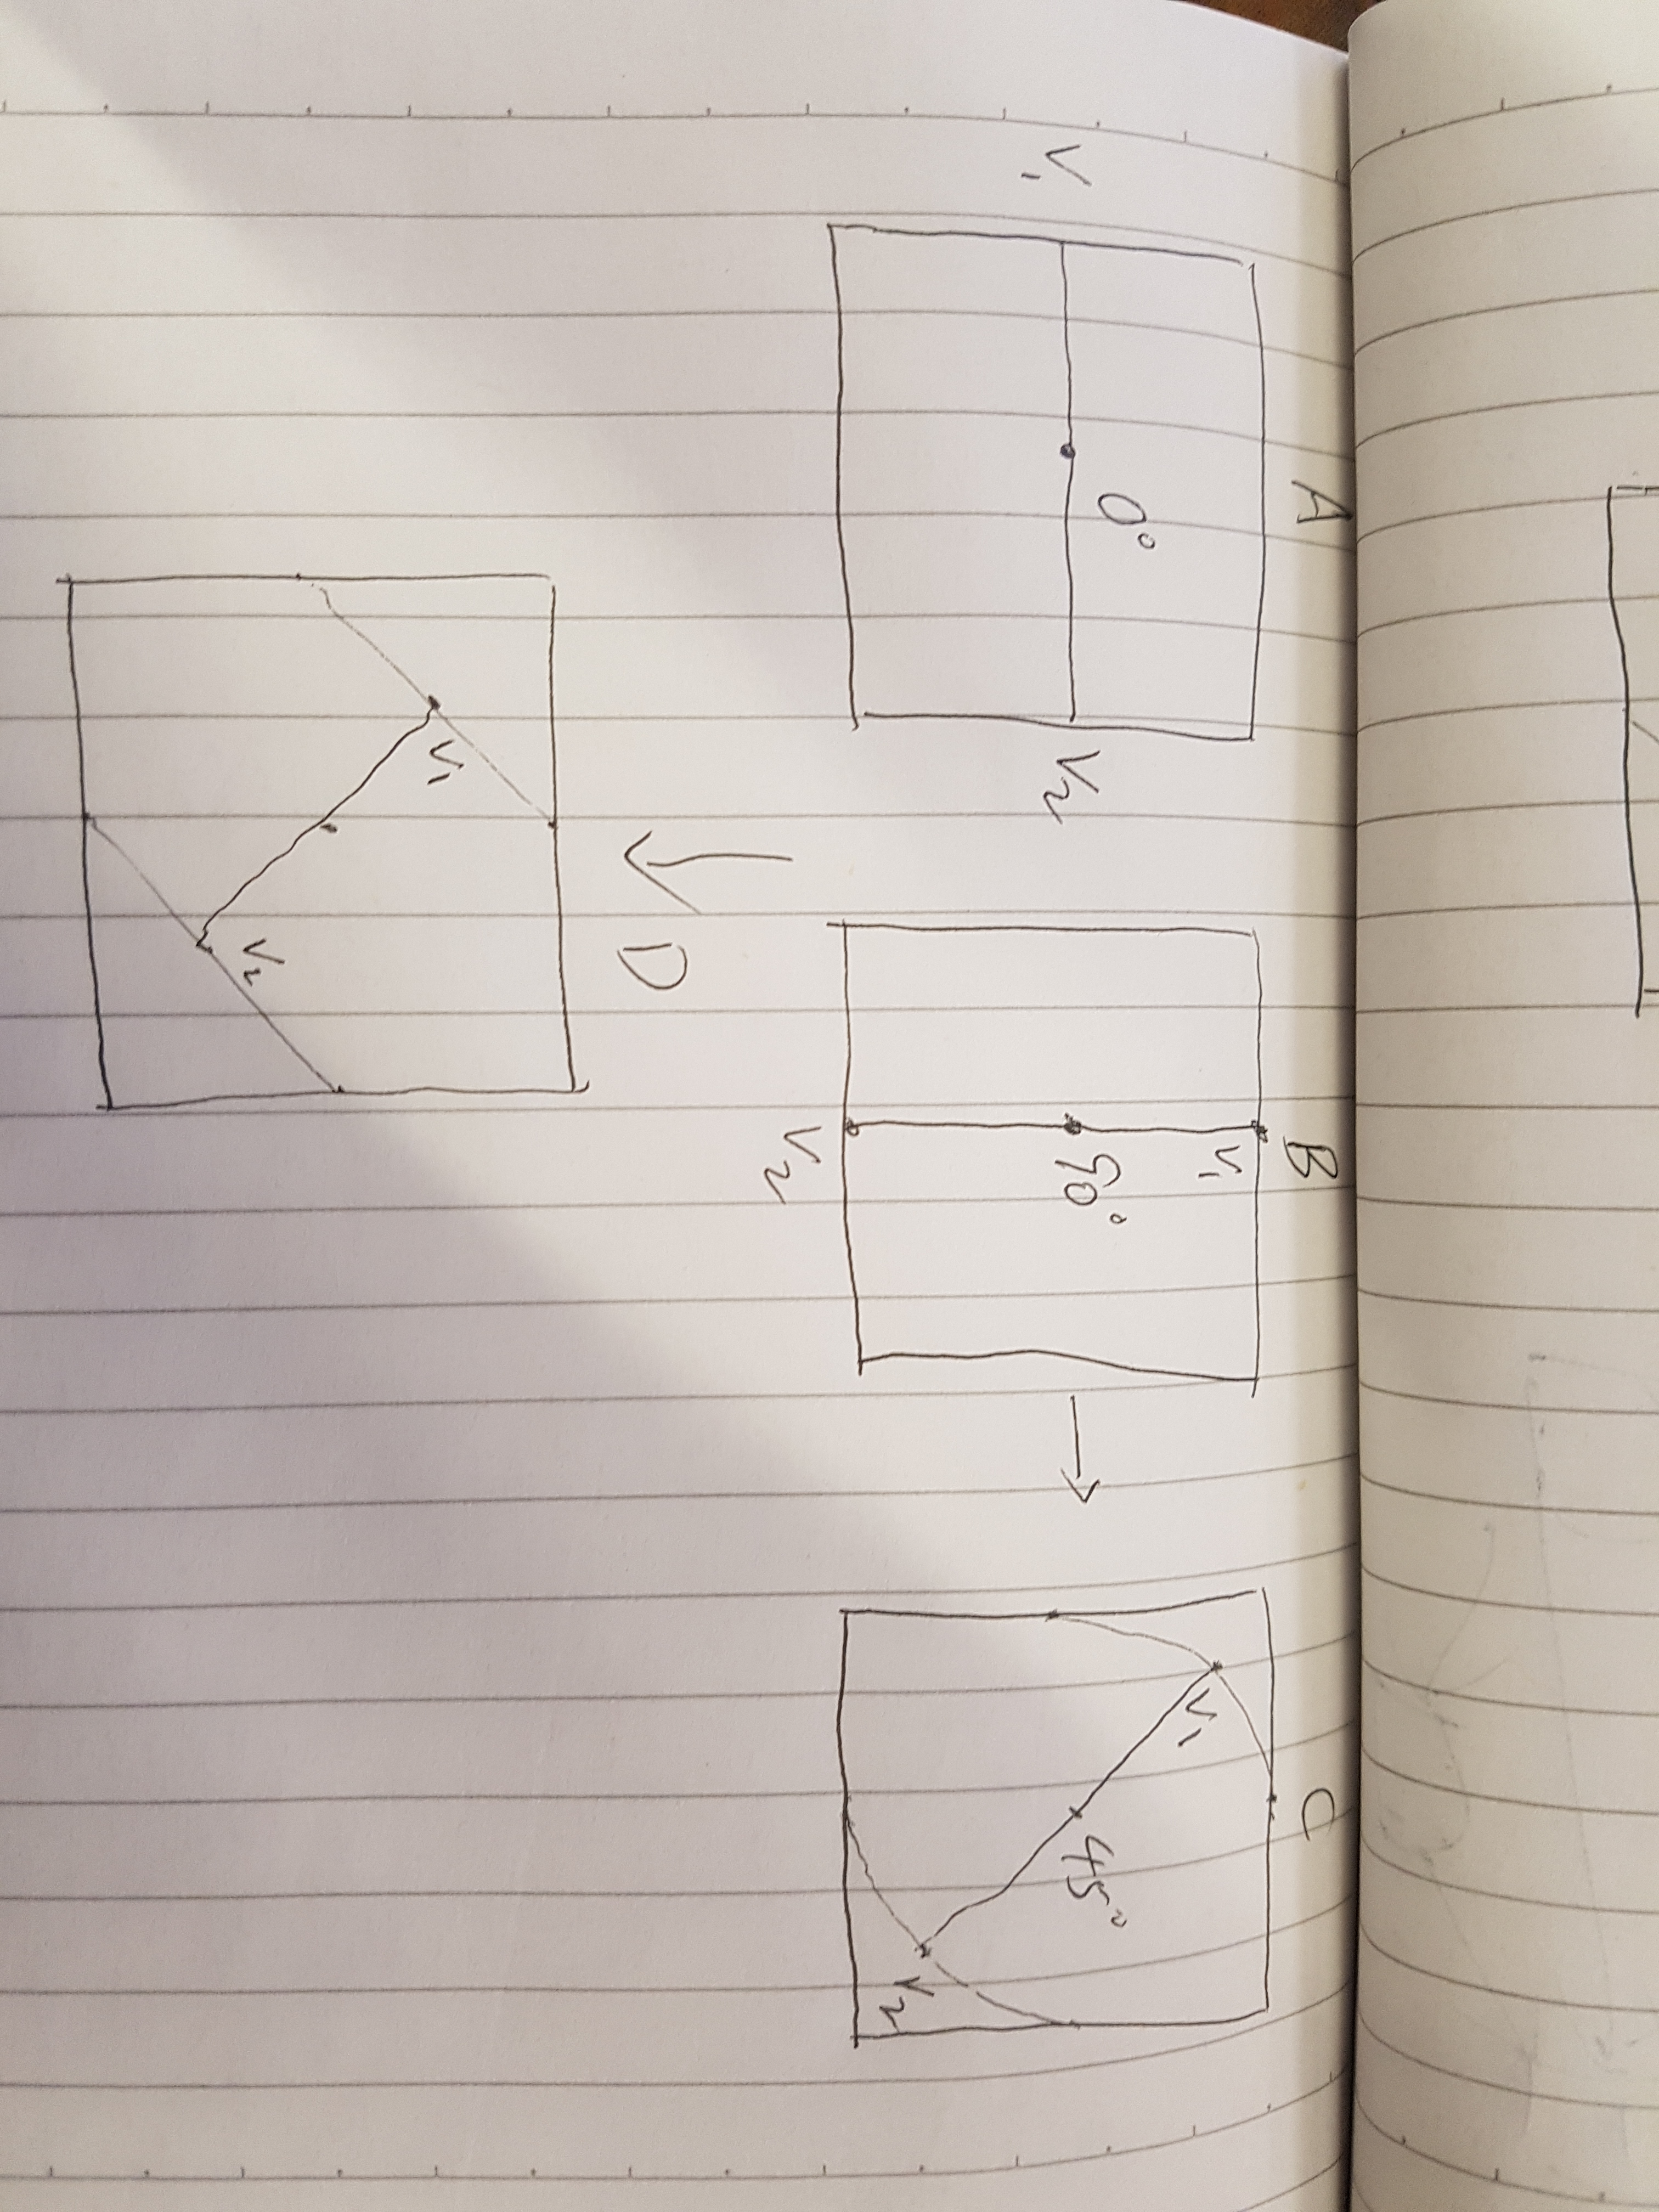 A
V1
0°
V2
B
V1
90°
V2
C
V1
45°
V2
D
V1
V2